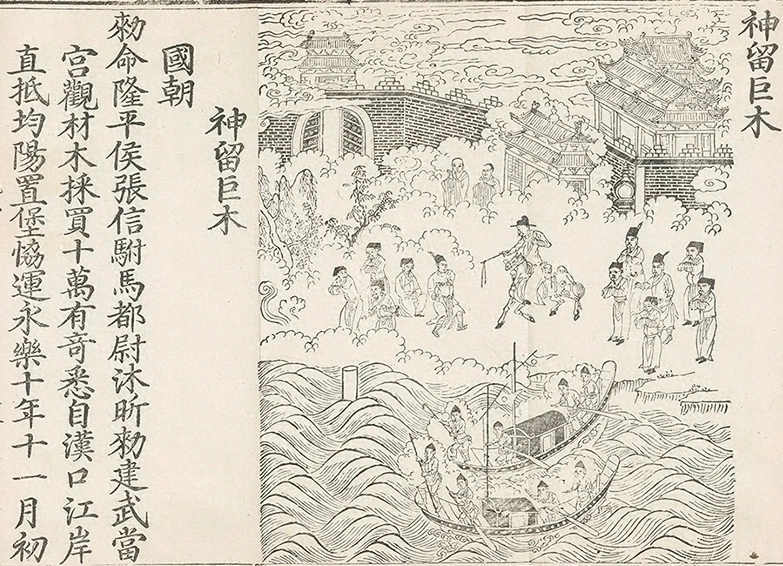 神留巨木
神留巨木
國朝
勑命隆平侯張信駙馬都尉沐昕勑建武當
宮觀材木採買十萬有奇悉自漢口江岸
直抵均陽置堡恊運永樂十年十一月初